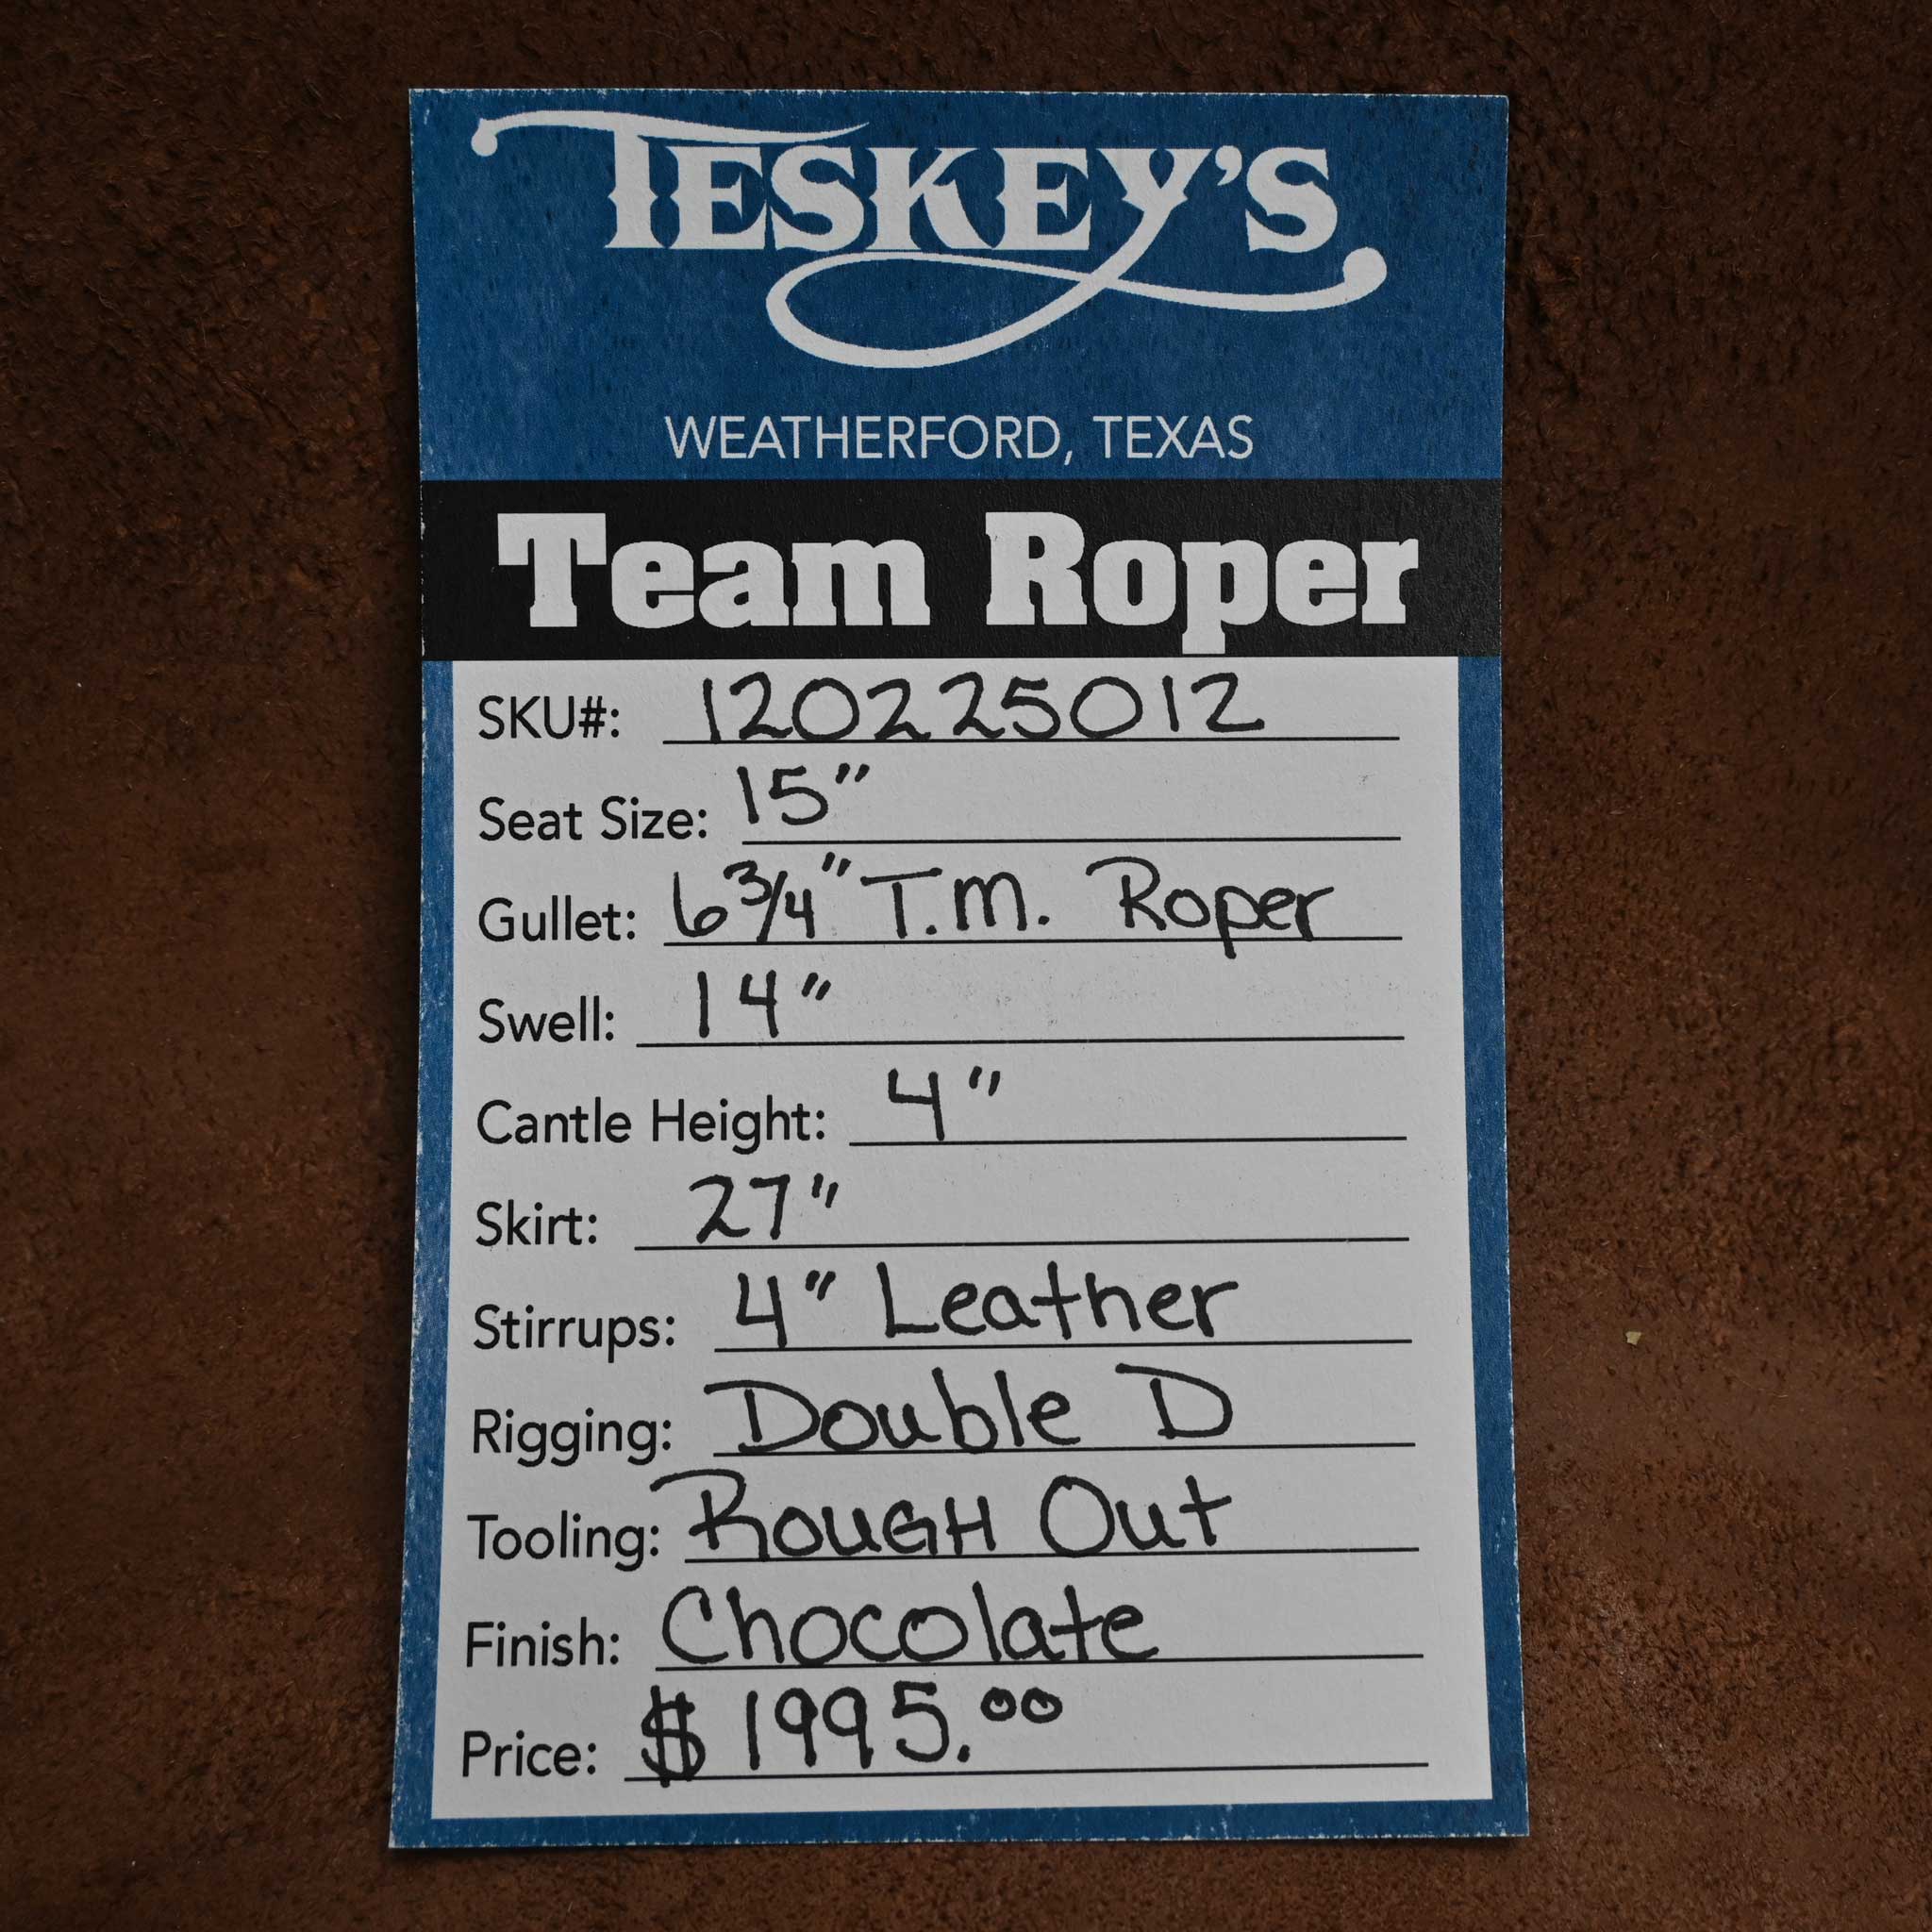 TESKEY'S
WEATHERFORD, TEXAS
Team Roper
SKU#: 120225012
Seat Size: 15"
Gullet: 6 3/4" T.M. Roper
Swell: 14"
Cantle Height: 4"
Skirt: 27"
Stirrups: 4" Leather
Rigging: Double D
Tooling: ROUGH Out
Finish: Chocolate
Price: $ 1995.00